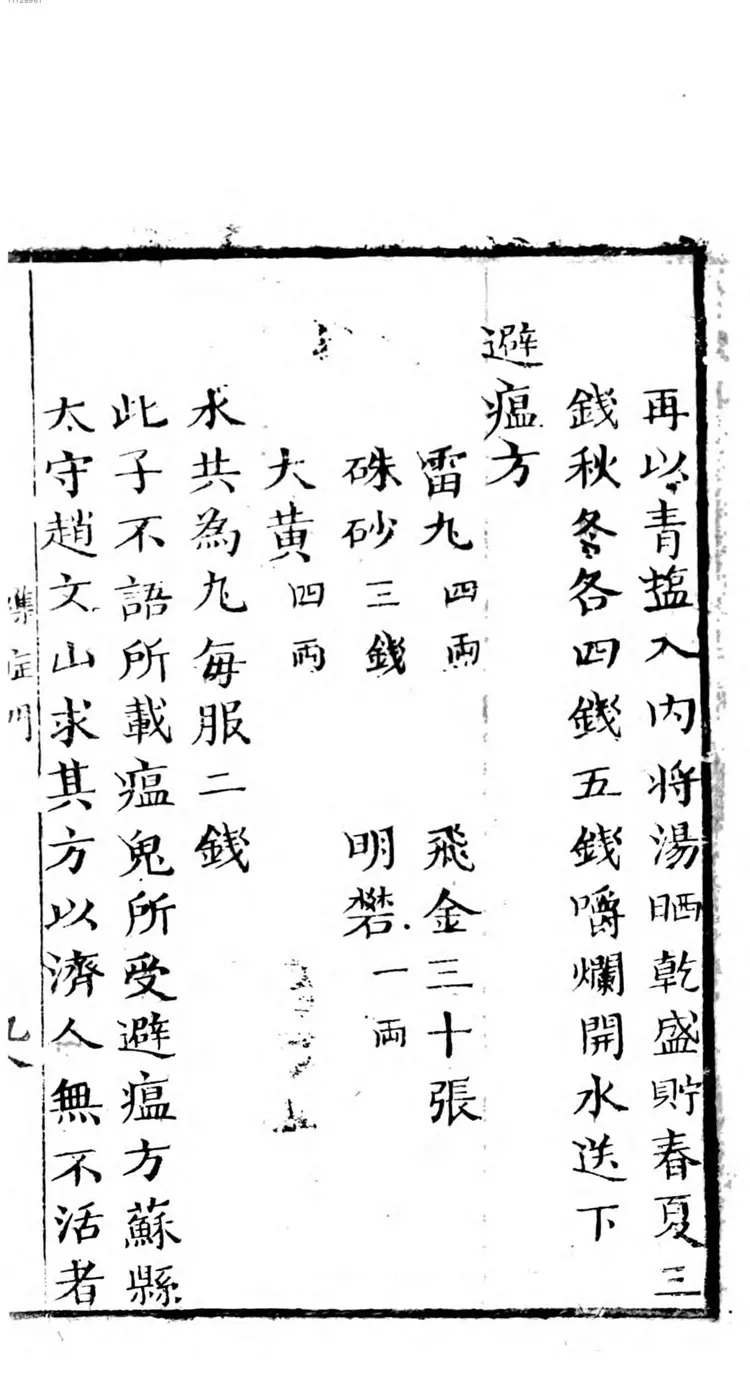 再以青塩入内将湯晒乾盛貯春夏三
錢秋冬各四錢五錢嚼爛開水送下
避瘟方
雷九四両 飛金三十張
硃砂三錢 明礬一両
大黄四両
水共為九每服二錢
此子不語所載瘟鬼所受避瘟方蘇縣
太守趙文山求其方以濟人無不活者